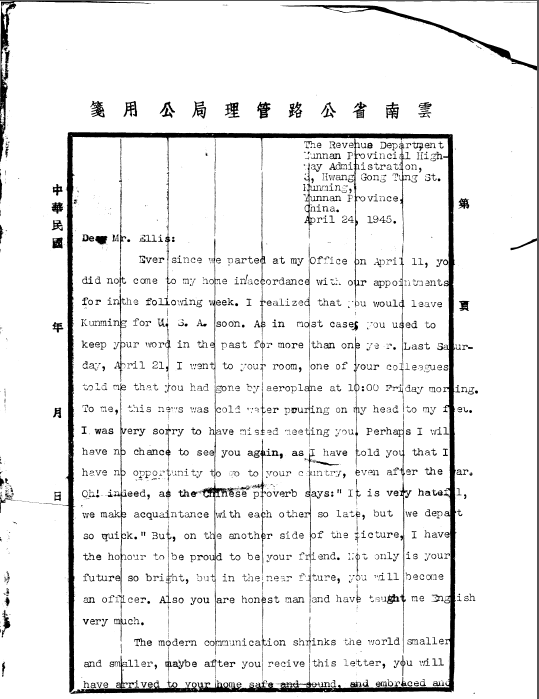 雲南省公路管理局公用箋
The Revenue Department
Yunnan Provincial High-
way Administration,
3, Hwang Gong Tung St.
Kunming,
Yunnan Province,
China.
April 24, 1945.
Dear Mr. Ellis:
Ever since we parted at my Office on April 11, you
did not come to my home in accordance with our appointments
for in the following week. I realized that you would leave
Kunming for U. S. A. soon. As in most case, you used to
keep your word in the past for more than one year. Last Satur-
day, April 21, I went to your room, one of your colleagues
told me that you had gone by aeroplane at 10:00 Friday morning.
To me, this news was cold water pouring on my head to my feet.
I was very sorry to have missed meeting you. Perhaps I will
have no chance to see you again, as I have told you that I
have no opportunity to go to your country, even after the war.
Oh! indeed, as the Chinese proverb says:" It is very hateful,
we make acquaintance with each other so late, but we depart
so quick." But, on the another side of the picture, I have
the honour to be proud to be your friend. Not only is your
future so bright, but in the near future, you will become
an officer. Also you are honest man and have taught me English
very much.
The modern communication shrinks the world smaller
and smaller, maybe after you recive this letter, you will
have arrived to your home safe and sound, and embraced and
中華民國 年 月 日
第 頁